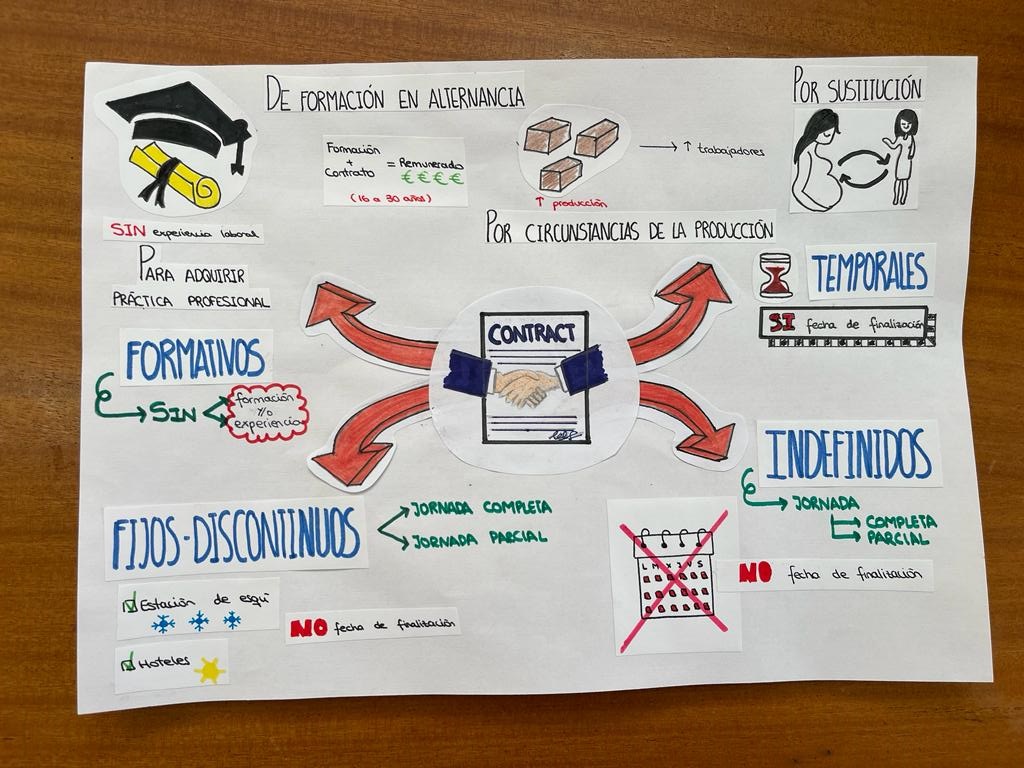 DE FORMACIÓN EN ALTERNANCIA
Formación
+
Contrato
= Remunerado
€€€€
(16 a 30 años)
SIN experiencia laboral
PARA ADQUIRIR
PRÁCTICA PROFESIONAL
FORMATIVOS
SIN
formación
y/o
experiencia
↑ producción
→ ↑ trabajadores
POR CIRCUNSTANCIAS DE LA PRODUCCIÓN
POR SUSTITUCIÓN
TEMPORALES
SI fecha de finalización
CONTRACT
FIJOS-DISCONTINUOS
JORNADA COMPLETA
JORNADA PARCIAL
Estación de esquí
Hoteles
NO fecha de finalización
INDEFINIDOS
JORNADA
COMPLETA
PARCIAL
L M X J V S
NO fecha de finalización